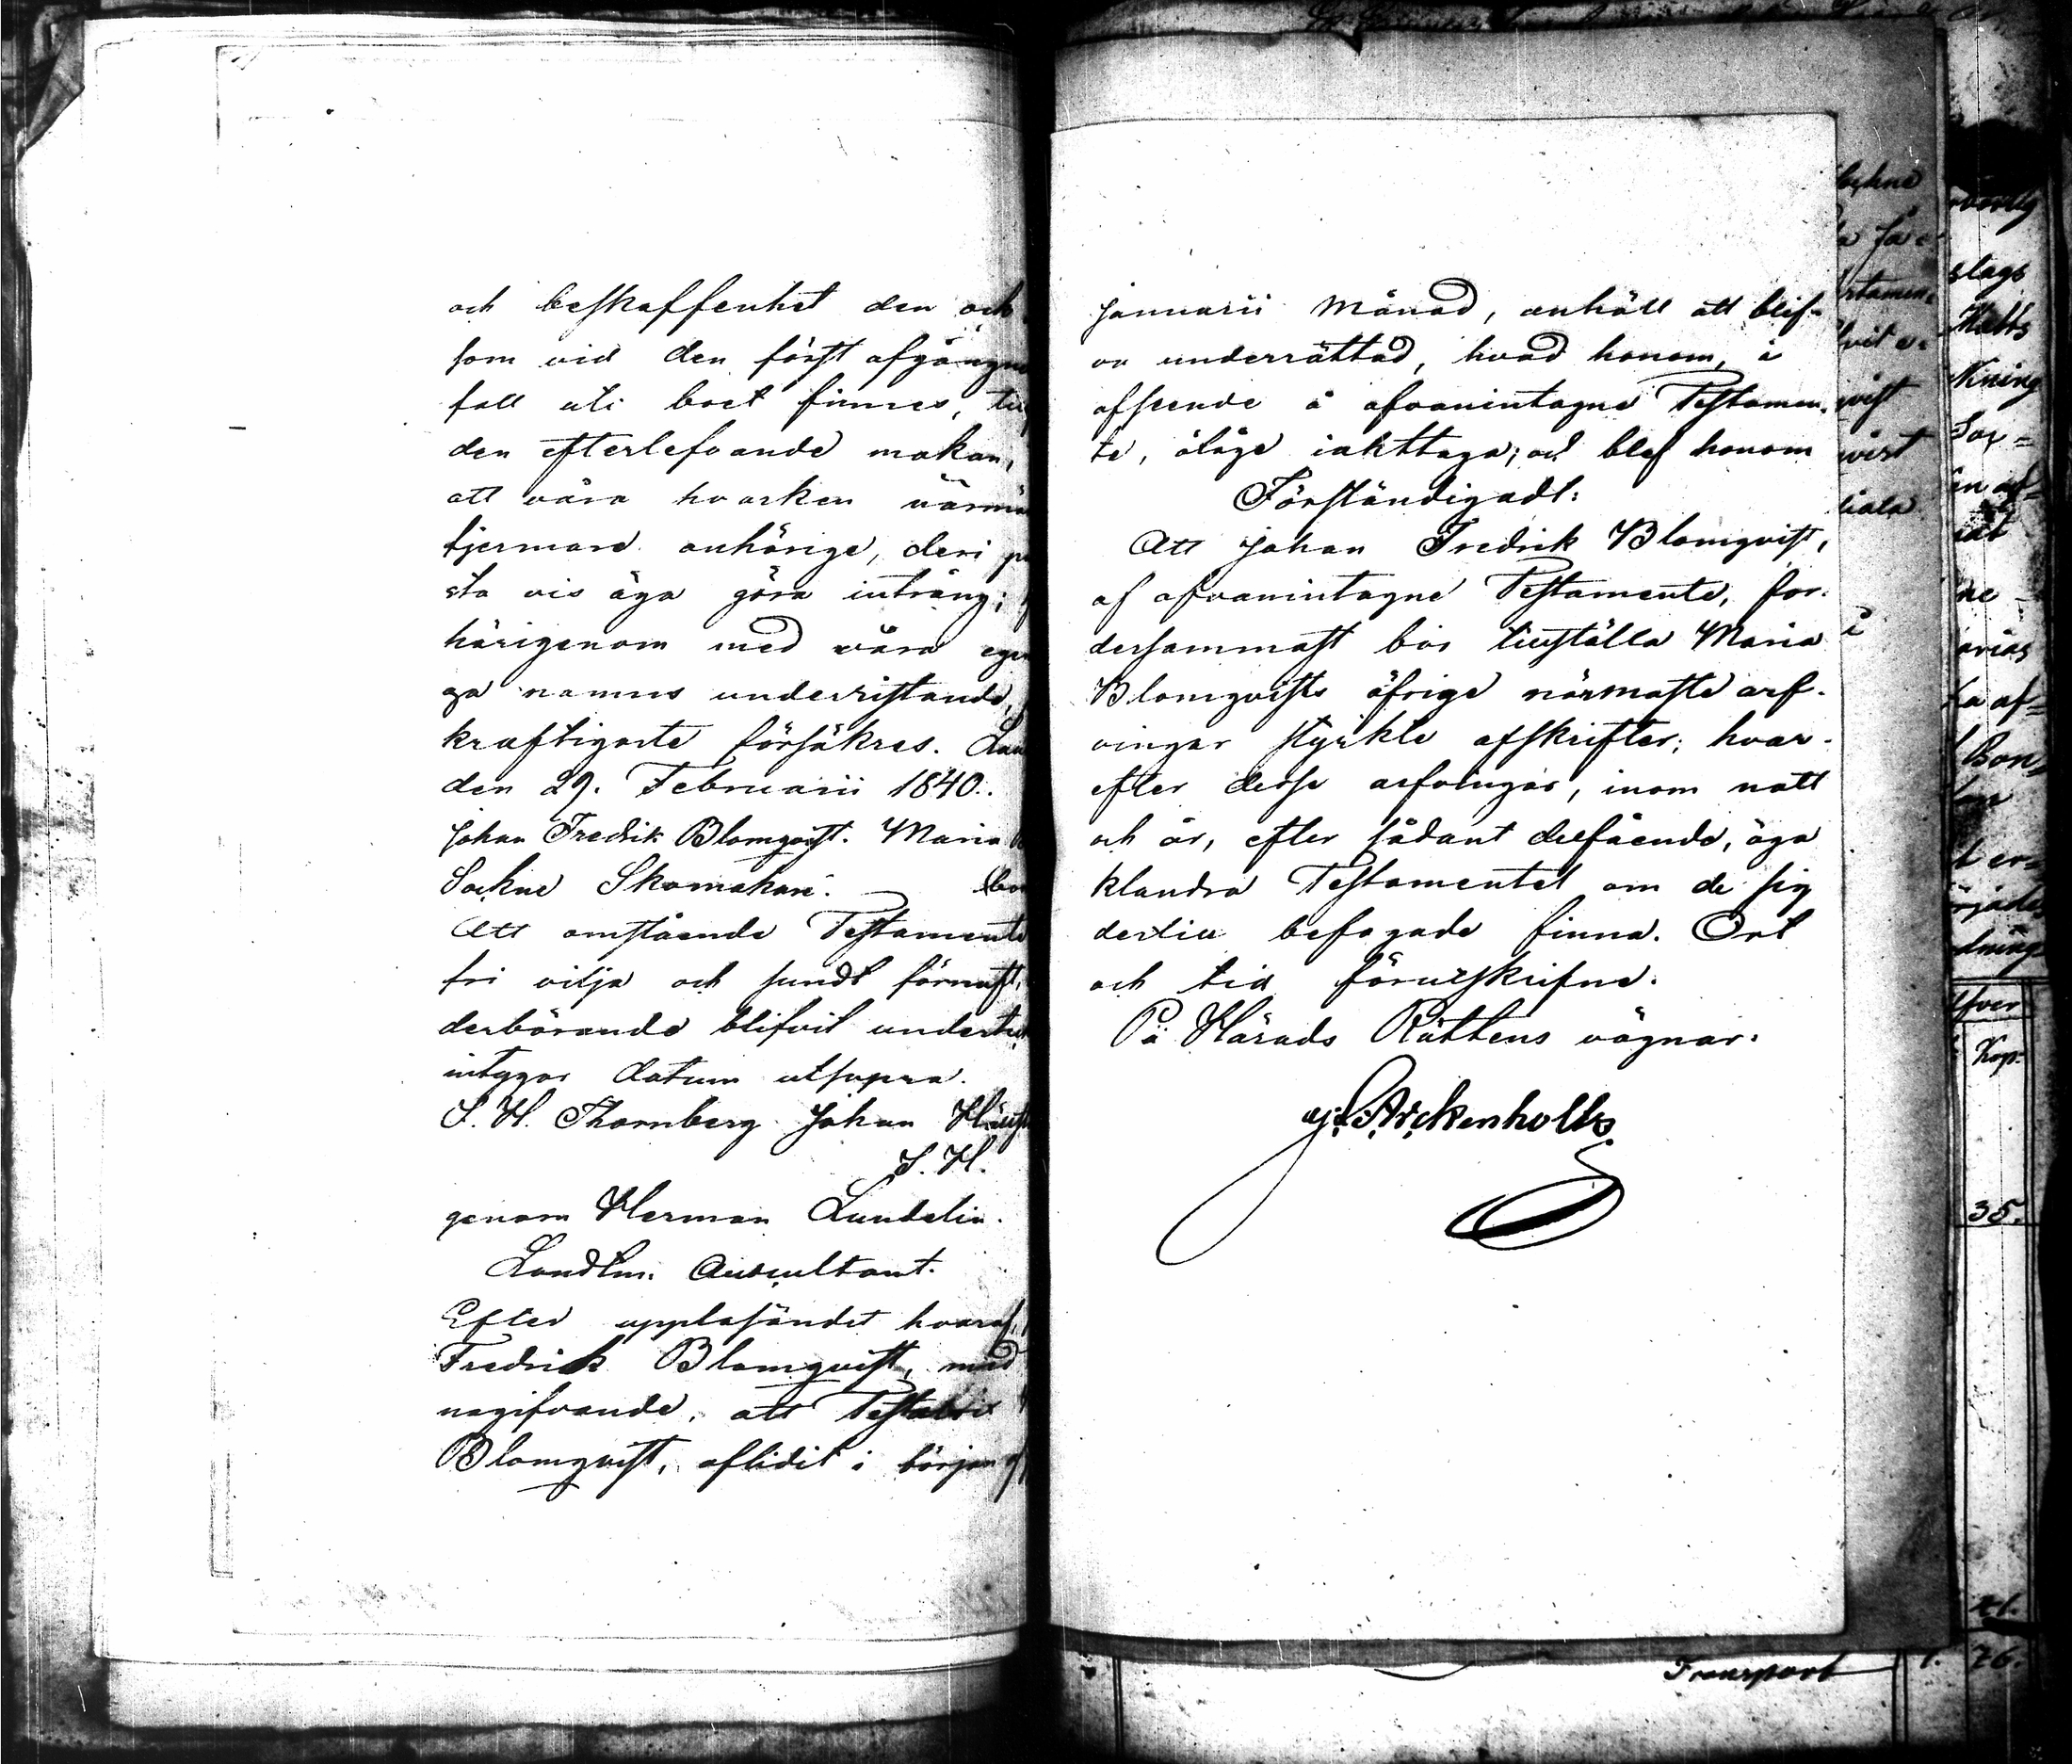 och beskaffenhet den och
som vid den först afgångne
fall uti boet finnes, till
den efterlefvande makan,
att våra hvarken närmare
fjermare anhörige, deri på
sta vis äga göra intrång;
härigenom med våra egen
ga namns underristande,
kraftigaste försäkras.
den 29. Februarii 1840.
Johan Fredrik Blomqvist. Maria
Sockne Skomakare.
Att omstående Testamente
fri vilja och sundt förnuft,
derbörande blifvit undert
intygar datum utsupra.
S. H. Thornberg Johan
S. H.
genom Herman Lundelin.
Landtm: Auscultant.
Efter uppläsandet hvaraf,
Fredrick Blomqvist, med
nagifvande, att Testatrix
Blomqvist, aflidit i början af
Januarii Månad, anhöll att blif-
va underrättad, hvad honom, i
afseende å ofvanintagne Testamen-
te, åläge iakttaga; och blef honom
Förständigadt:
Att Johan Fredrik Blomqvist,
af ofvanintagne Testamente, for-
dersammast bör tillställa Maria
Blomqvists öfrige närmaste arf-
vingar styrkte afskrifter; hvar-
efter desse arfvingar, inom natt
och år, efter sådant delfående, äga
klandra Testamentet om de sig
dertill befogade finna. Ort
och tid förutskrifne.
På Härads Rättens vägnar.
Arckenholtz.
slags
Kop.
35.
Transport 1. 76.